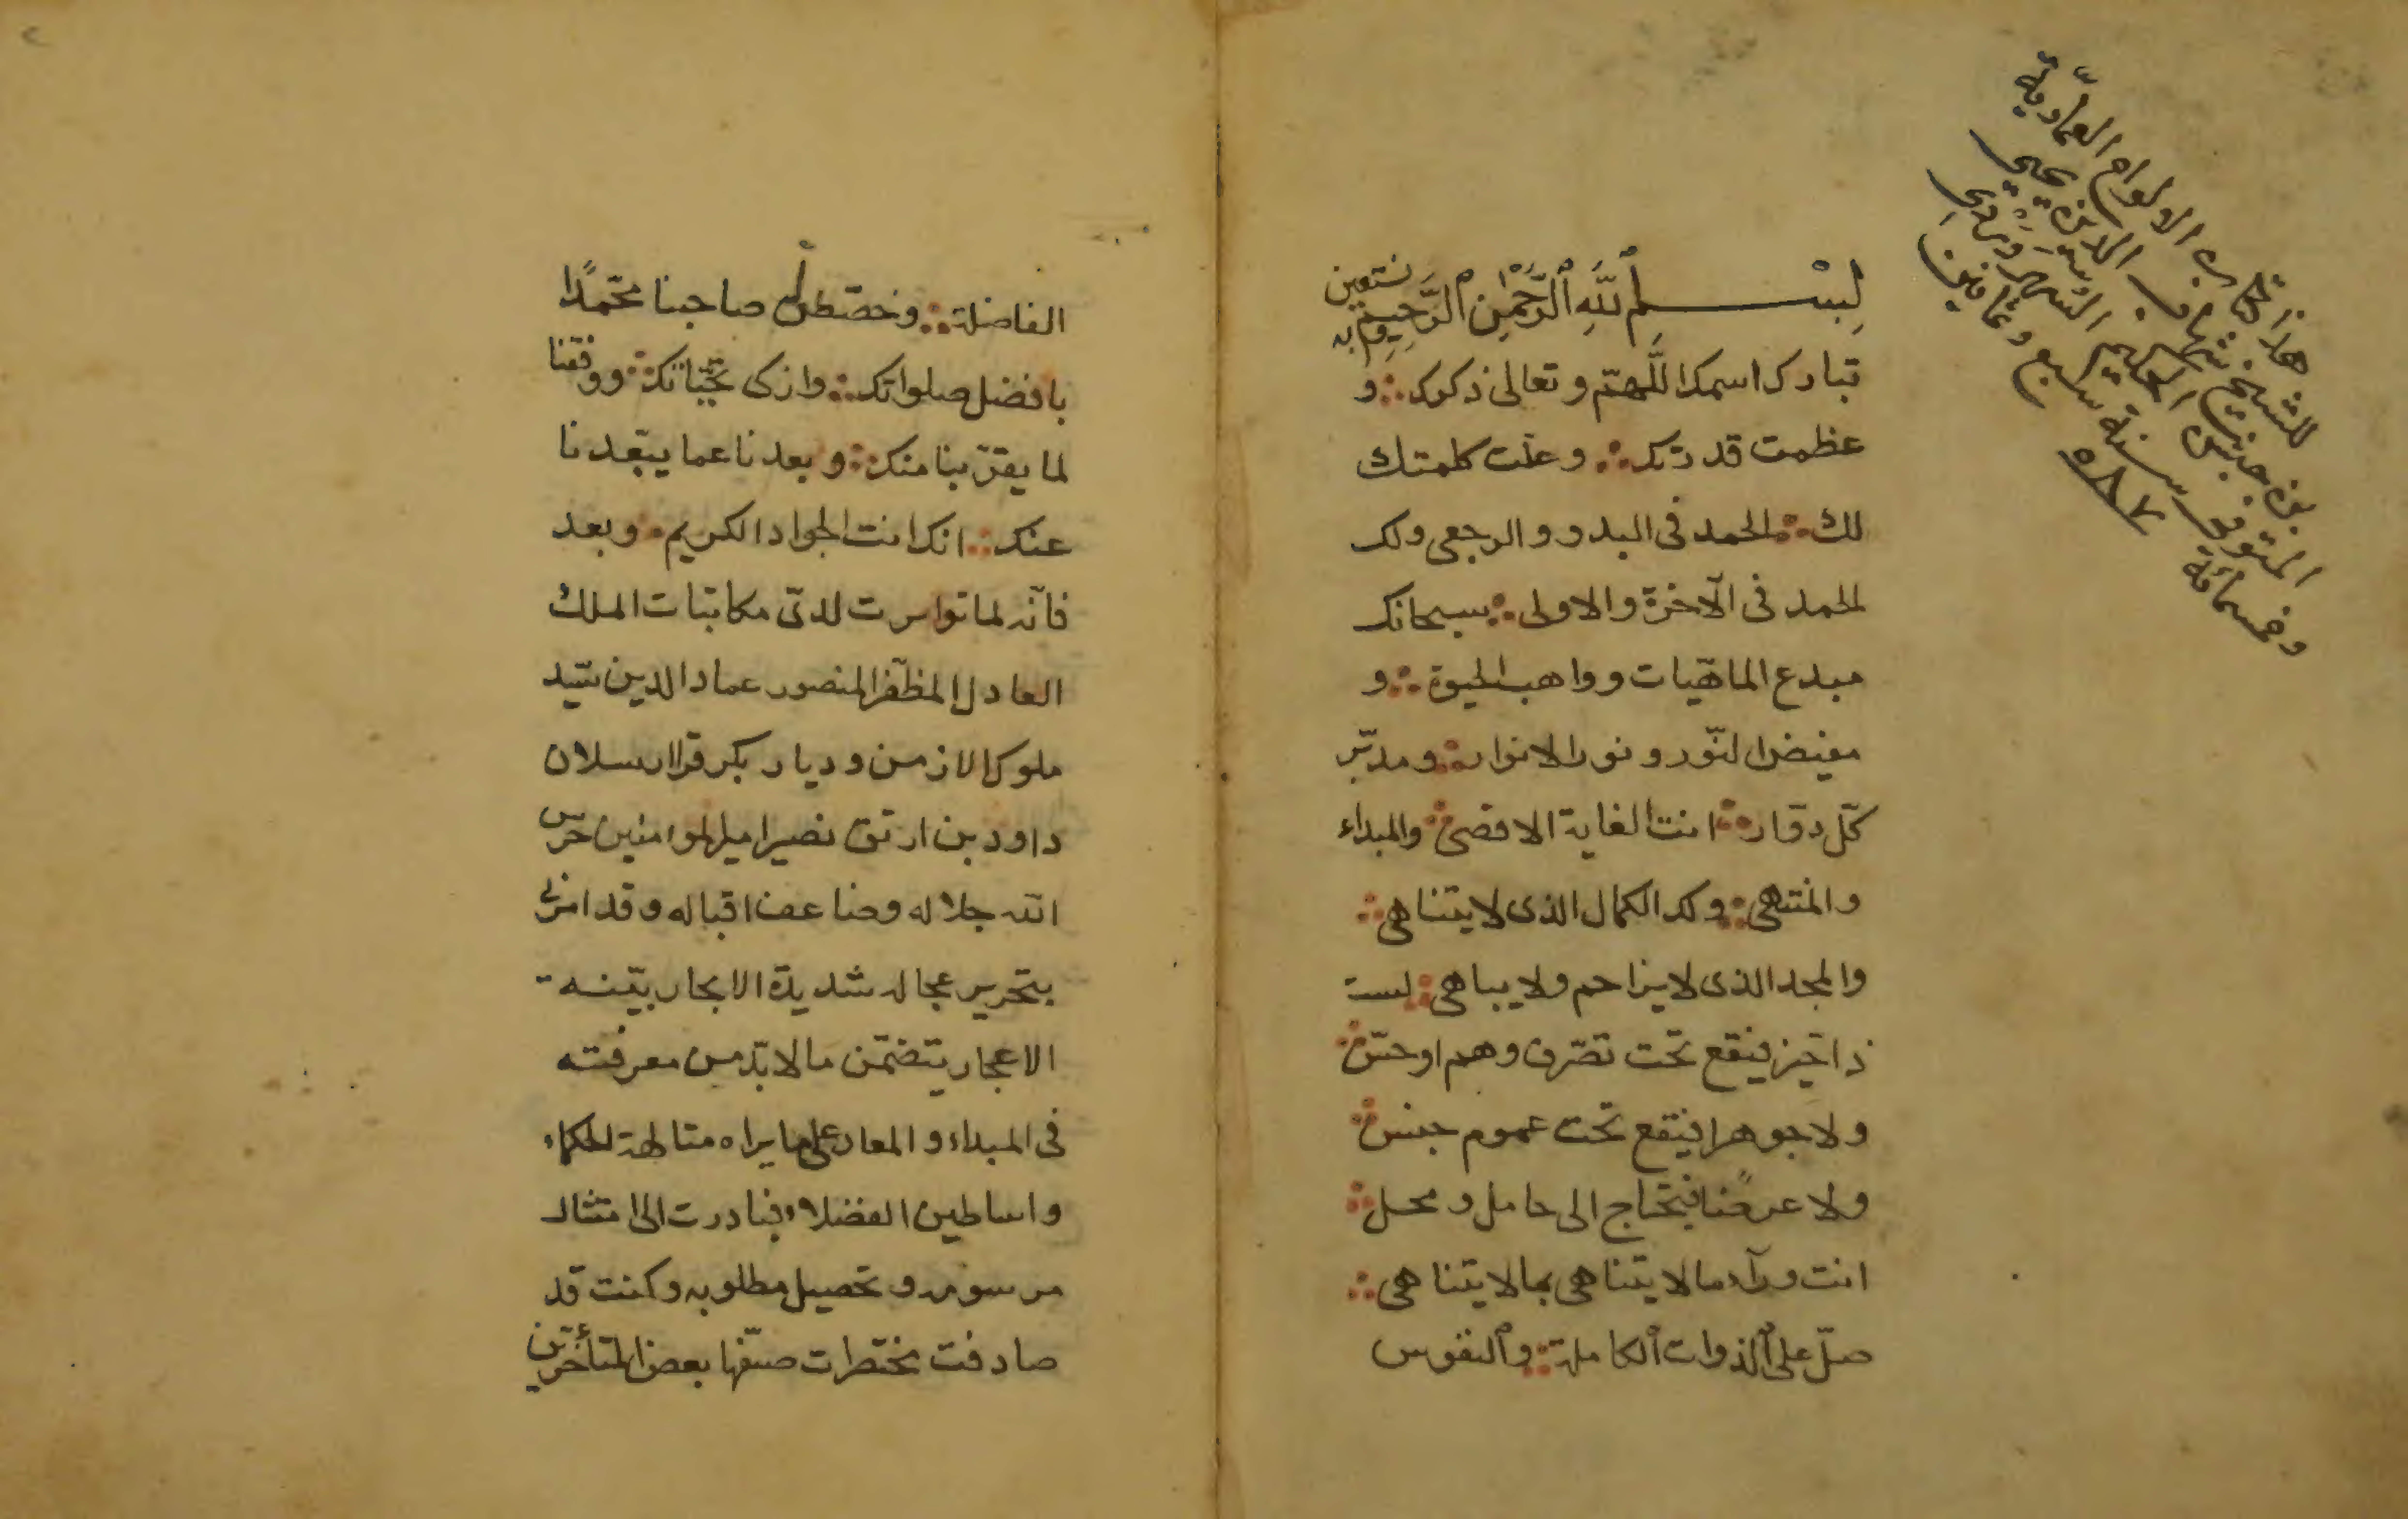 هذا كتاب الالواح العمّاديّة
للشيخ شهاب الدين يحيى
بن حبش الحكيم السهروردي
المتوفى سنة سبع وثمانين
وخمسمائة ٥٨٧
بِسْمِ ٱللَّهِ ٱلرَّحْمٰنِ ٱلرَّحِيمِ وبه نستعين
تبارك اسمك اللّهمّ وتعالى ذكرك ؞ و
عظمت قدرتك ؞ وعلت كلمتك
لك ؞ الحمد فى البدو والرجعى ولك
الحمد فى الآخرة والاولى ؞ سبحانك
مبدع الماهيّات وواهب الحيوة ؞ و
مفيض النّور ونور الانوار ؞ ومدبّر
كلّ دوّار ؞ انت الغاية الاقصى ؞ والمبداء
والمنتهى ؞ ولك الكمال الذى لا يتناهى ؞
والمجد الذى لا يزاحم ولا يباهى ؞ لست
ذا حيّز فيقع تحت تصرّف وهم او حسّ ؞
ولا جوهرا فيقع تحت عموم جنس ؞
ولا عرضًا فيحتاج الى حامل ومحل ؞
انت ورآء ما لا يتناهى بما لا يتناهى ؞
صلّ على ٱلذوات ٱلكاملة ؞ وٱلنفوس
الفاضلة ؞ وخصّص صاحبنا محمّدًا
بافضل صلواتك ؞ وازكى تحيّاتك ؞ ووفقنا
لما يقرّبنا منك ؞ وبعدنا عما يبعّدنا
عنك ؞ انك انت الجواد الكريم ۰ وبعد
فانّه لما تواترت لدىّ مكاتبات الملك
العادل المظفّر المنصور عماد الدين سيّد
ملوك الازمن وديار بكر قرا ارسلان
داود بن ارتق نصير امير الموامنين حرّس
الله جلاله وضاعف اقباله وقد امرنى
بتحرير عجاله شديدة الايجاز بيّنه
الاعجاز يتضمّن ما لا بدّ من معرفته
فى المبداء والمعاد على ما يراه متالهة الحكماء
واساطين الفضلاء فبادرت الى امتثال
مرسومه وتحصيل مطلوبه وكنت قد
صادفت مختصرات صنّفها بعض المتأخّرين